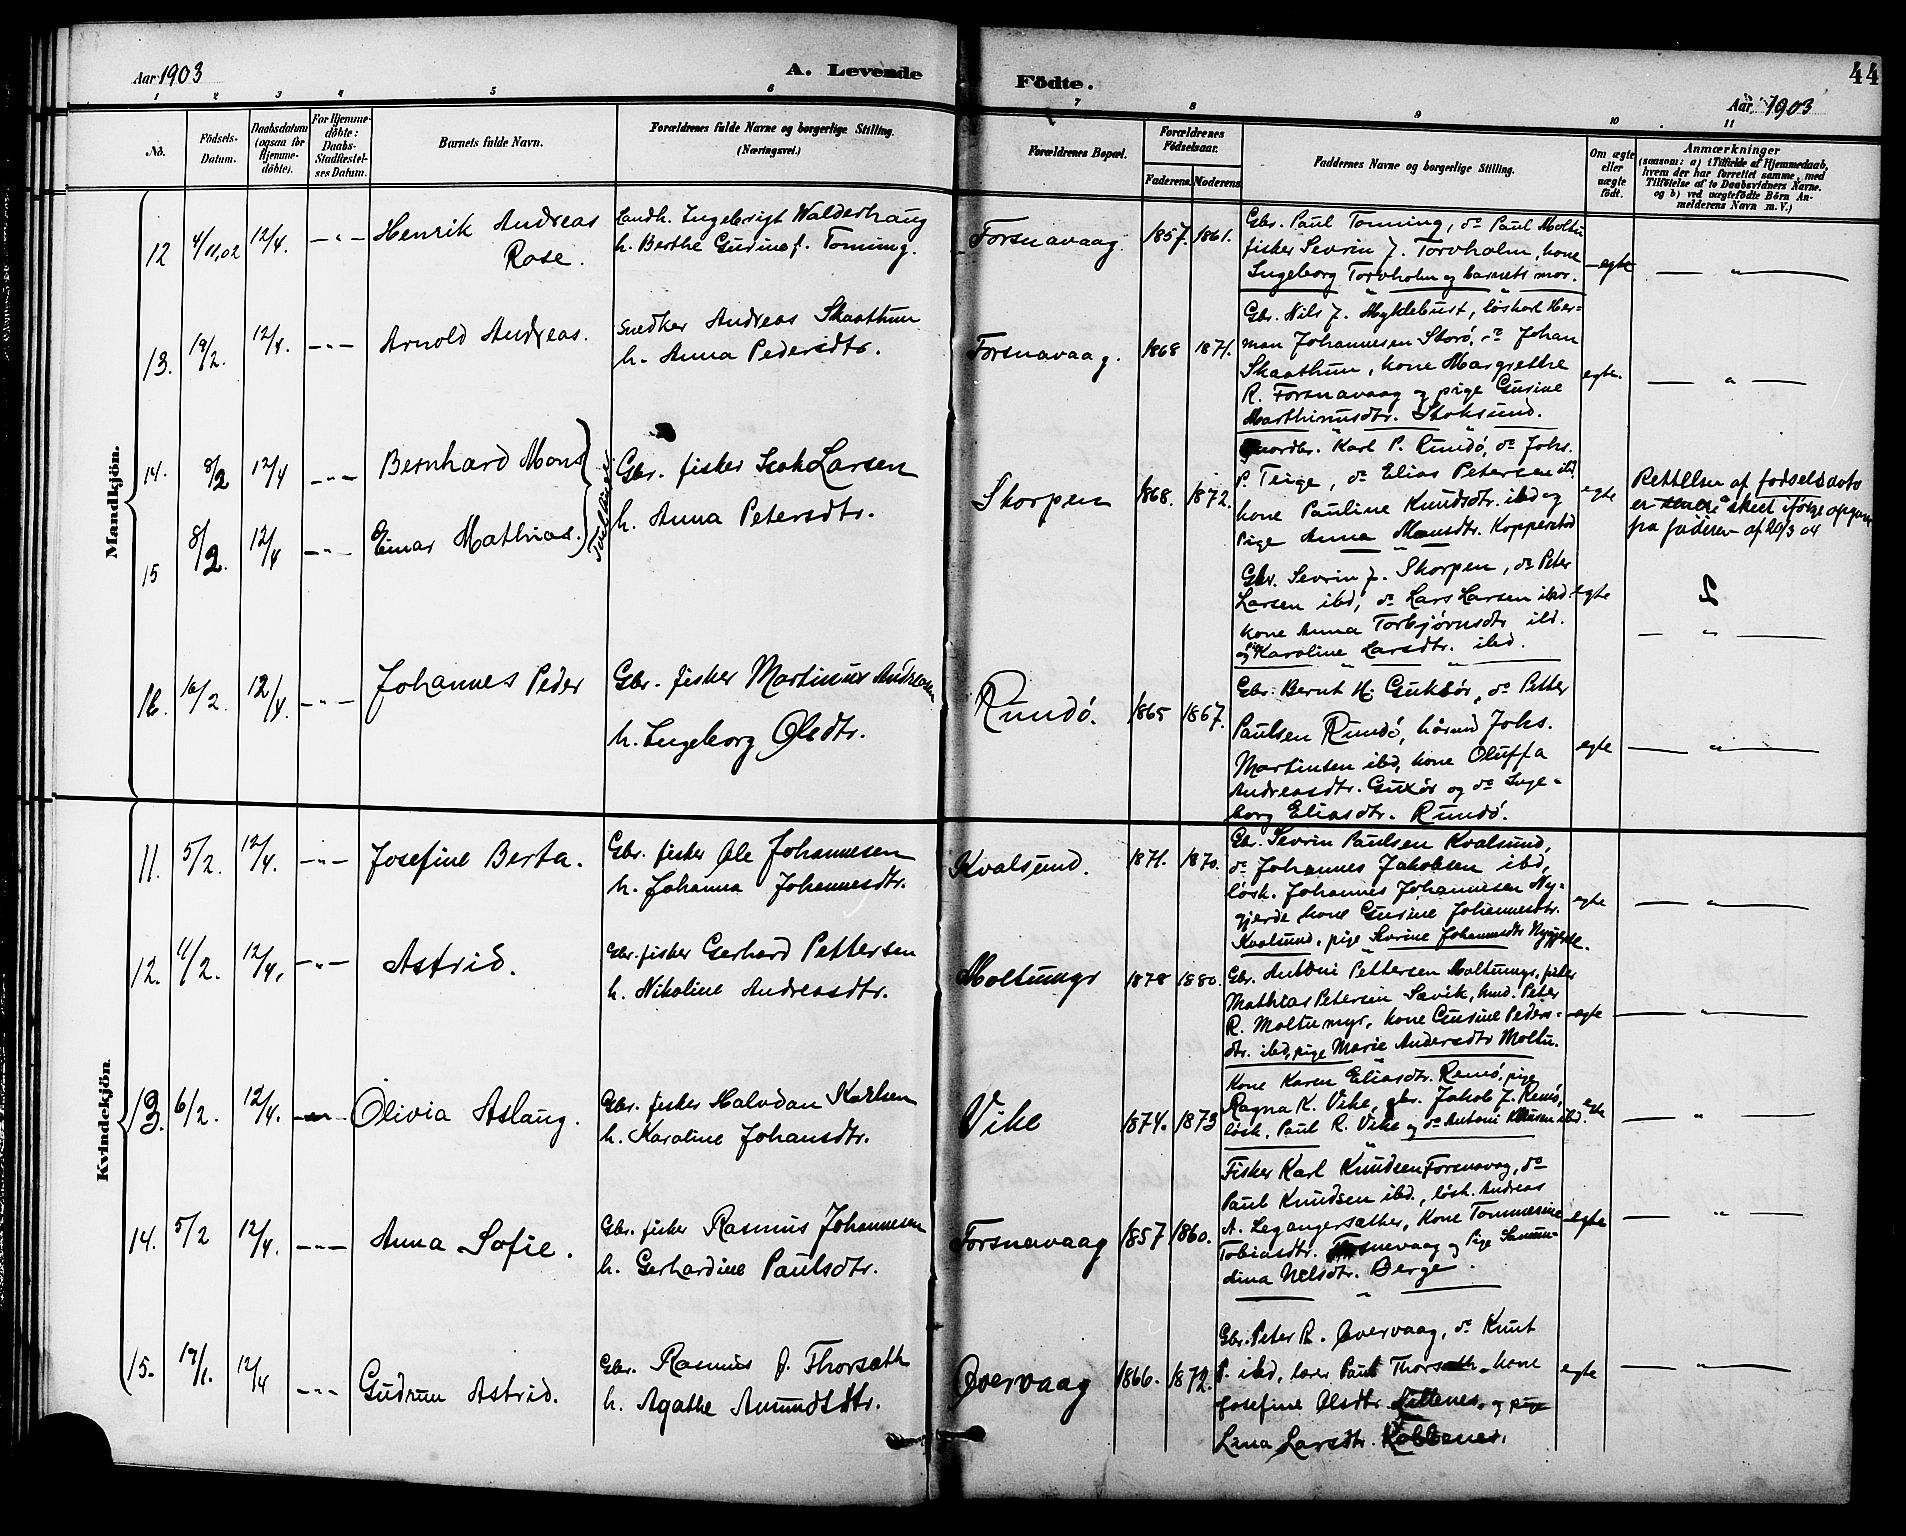 Aar 1903
A. Levende
Födte.
44
Aar 1903
1 2 3 4 5 6 7 8 9 10 11
No.
Födsels-
Datum.
Daabsdatum
(ogsaa for
Hjemme-
döbte).
For Hjemme-
döbte:
Daabs-
Stadfæstel-
ses Datum.
Barnets fulde Navn.
Forældrenes fulde Navne og borgerlige Stilling.
(Næringsvei.)
Forældrenes Bopæl.
Forældrenes
Födselsaar.
Faderens. Moderens.
Faddernes Navne og borgerlige Stilling.
Om ægte
eller
uægte
født.
Anmærkninger
(saasom: a) i Tilfælde af Hjemmedaab,
hvem der har forrettet samme, med
Tilföielse af to Daabsvidners Navne,
og b) ved uægtefödte Börn An-
melderens Navn m. V.)
Mandkjön.
12 4/11,02 12/4. — " — Henrik Andreas
Rose.
Landh. Ingebrigt Walderhaug
h. Berthe Gurine f. Tonning.
Forsnavaag. 1857. 1861.
Gbr. Paul Tonning, do Paul Moltu
fisker Sevrin J. Torvholm, kone
Ingeborg Torvholm og barnets mor.
egte — " —
13. 19/2. 12/4. — " — Arnold Andreas.
Snedker Andreas Skaathun
h. Anna Pedersdtr.
Forsnavaag. 1868 1871.
Gbr. Nils J. Myklebust, løskarl Her-
man Johannesen Storø, do Johan
Skaathun, kone Margrethe
R. Forsnavaag og pige Gurine
Marthinusdtr. Stoksund.
egte. — " —
14. 8/2 12/4 — " — Bernhard Mons
15 8/2. 12/4 — " — Einar Mathias.
Tvillinger
Gbr. fisker Isak Larsen
h. Anna Petersdtr.
Skorpen 1868. 1872.
Gaardbr. Karl P. Rundö, do Johs.
P. Teige, do Elias Petersen ibd
kone Pauline Knudsdtr. ibd og
Pige Anna Monsdtr. Kopperstad
egte
Rettelsen af fodselsdato
er skeet ifölge opgave
fra faderen af 20/3 04
Gbr. Sevrin J. Skorpen, do Peter
Larsen ibd, do Lars Larsen ibd.
kone Anna Torbjørnsdtr ibd.
og Karoline Larsdtr. ibd.
egte
— " —
16. 16/2. 12/4. — " — Johannes Peder
Gbr. fisker Martinus Andreasen
h. Ingeborg Olsdtr.
Rundö. 1865 1867.
Gbr. Bernt H. Guksør, do Petter
Paulsen Rundö, Johs.
Martinsen ibd, kone Oluffa
Andreasdtr. Guxør og do Inge-
borg Eliasdtr. Rundö.
egte — " —
Kvindekjön
11. 5/2. 12/4. — " — Josefine Berta.
Gbr. fisker Ole Johannesen
h. Johanna Johannesdtr.
Kvalsund. 1871. 1870.
Gb. Sevrin Paulsen Kvalsund,
do Johannes Jakobsen ibd,
løsk. Johannes Johannesen Ny-
gjerde kone Gurine Johannesdtr.
Kvalsund, pige Sevrine Johannesdtr Nygjerde.
egte — " —
12. 4/2. 12/4. — " — Astrid.
Gbr. fisker Gerhard Pettersen
h. Nikoline Andreasdtr.
Moltumyr 1878 1880.
Gbr. Antoni Pettersen Moltumyr, fisker
Mathias Petersen Sævik, hmd. Peter
R. Moltumyr, kone Gurine Peders-
dtr. ibd, pige Marie Andersdtr Moltu.
egte — " —
13. 6/2. 12/4. — " — Olivia Aslaug.
Gbr. fisker Halvdan Karlsen
h. Karoline Johansdtr.
Vike 1874. 1873
Kone Karen Eliasdtr. Remö, pige
Ragna K. Vike, gbr. Jakob J. Remö,
løsk. Paul R. Vike og do Antoni ibd.
egte — " —
14. 5/2 12/4. — " — Anna Sofie.
Gbr. fisker Rasmus Johannesen
h. Gerhardine Paulsdtr.
Forsnavaag 1857 1860.
Fisker Karl Knudsen Forsnavag, do
Paul Knudsen ibd., løsk. Andreas
A. Legangersæther, Kone Tommesine
Tobiasdtr. Forsnevaag og Pige Samun-
dina Nelsdtr. Berge.
egte — " —
15. 19/1. 12/4 — " — Gudrun Astrid.
Gbr. Rasmus J. Thorsæth
h. Agathe Amundsdtr.
Overvaag 1866. 1872.
Gbr. Peter R. Overvaag, do Knut
P. ibd, lærer Paul Thorsæth, kone
Josefine Olsdtr. og pige
Lina Larsdtr. Kobbenes.
egte — " —